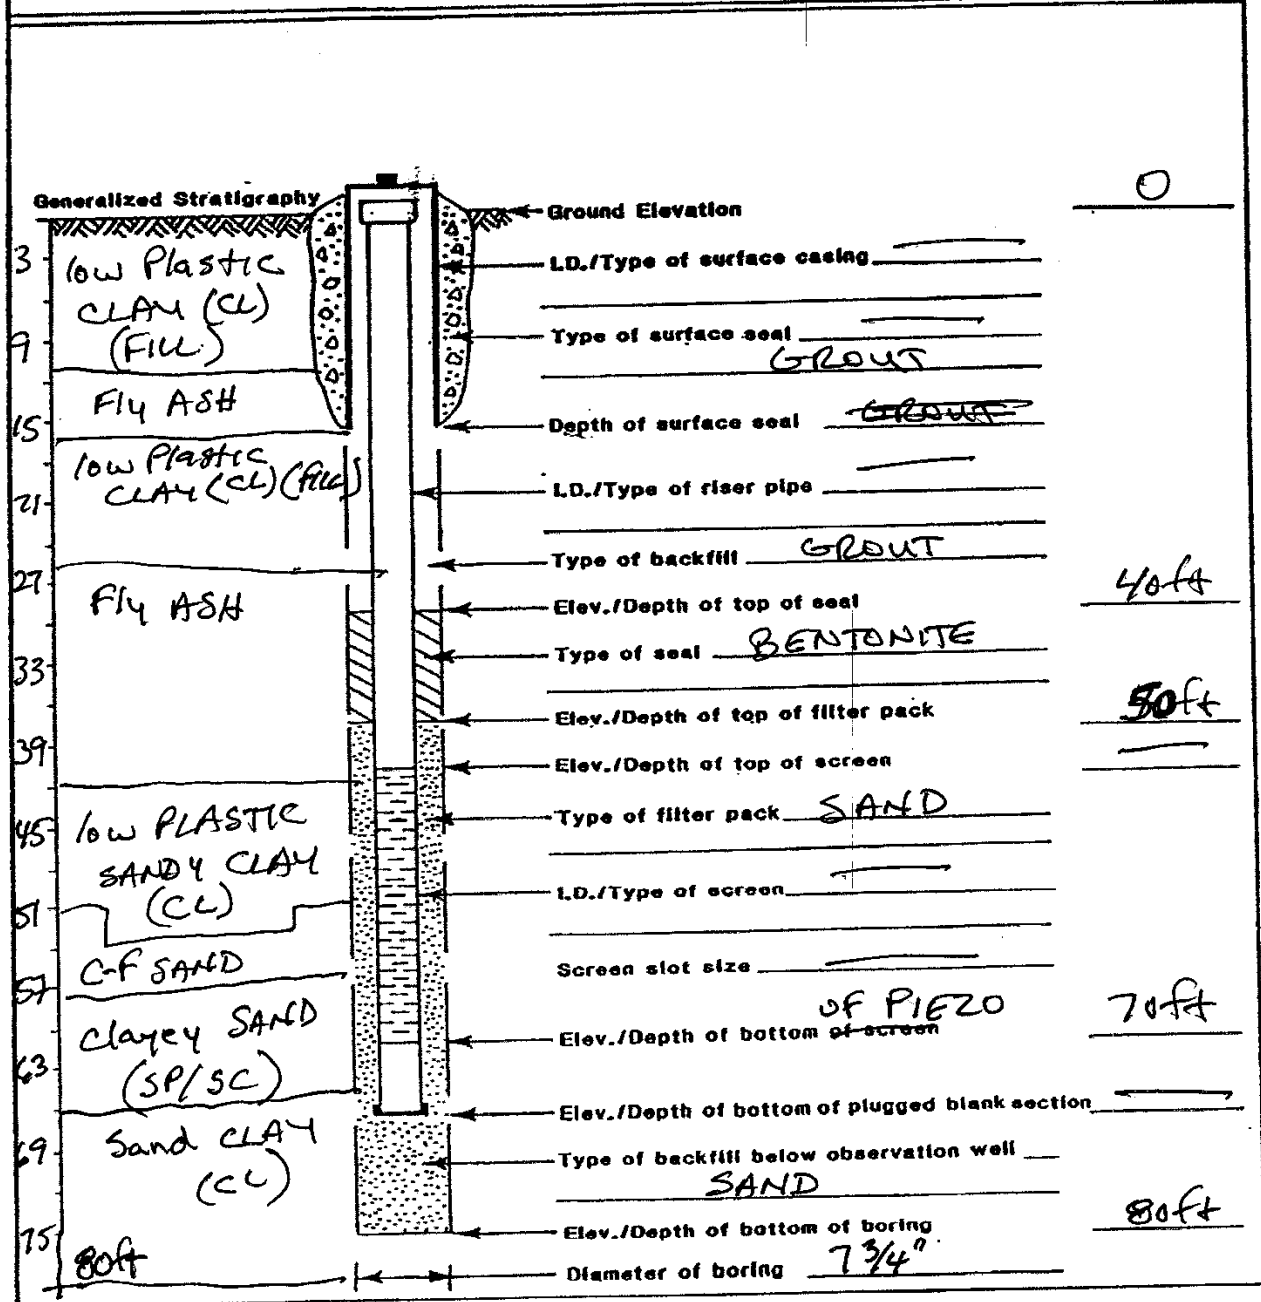 Generalized Stratigraphy
3
low Plastic
CLAY (CL)
(FILL)
9
Fly ASH
15
low Plastic
CLAY (CL) (FILL)
21
27
Fly ASH
33
39
45
low PLASTIC
SANDY CLAY
(CL)
51
C-F SAND
57
Clayey SAND
(SP/SC)
63
Sand CLAY
(CL)
69
75
80ft
Ground Elevation 0
I.D./Type of surface casing
Type of surface seal
GROUT
Depth of surface seal GROUT
I.D./Type of riser pipe
Type of backfill GROUT
Elev./Depth of top of seal 40ft
Type of seal BENTONITE
Elev./Depth of top of filter pack 50ft
Elev./Depth of top of screen
Type of filter pack SAND
I.D./Type of screen
Screen slot size
OF PIEZO
Elev./Depth of bottom of screen 70ft
Elev./Depth of bottom of plugged blank section
Type of backfill below observation well
SAND
Elev./Depth of bottom of boring 80ft
Diameter of boring 7 3/4"